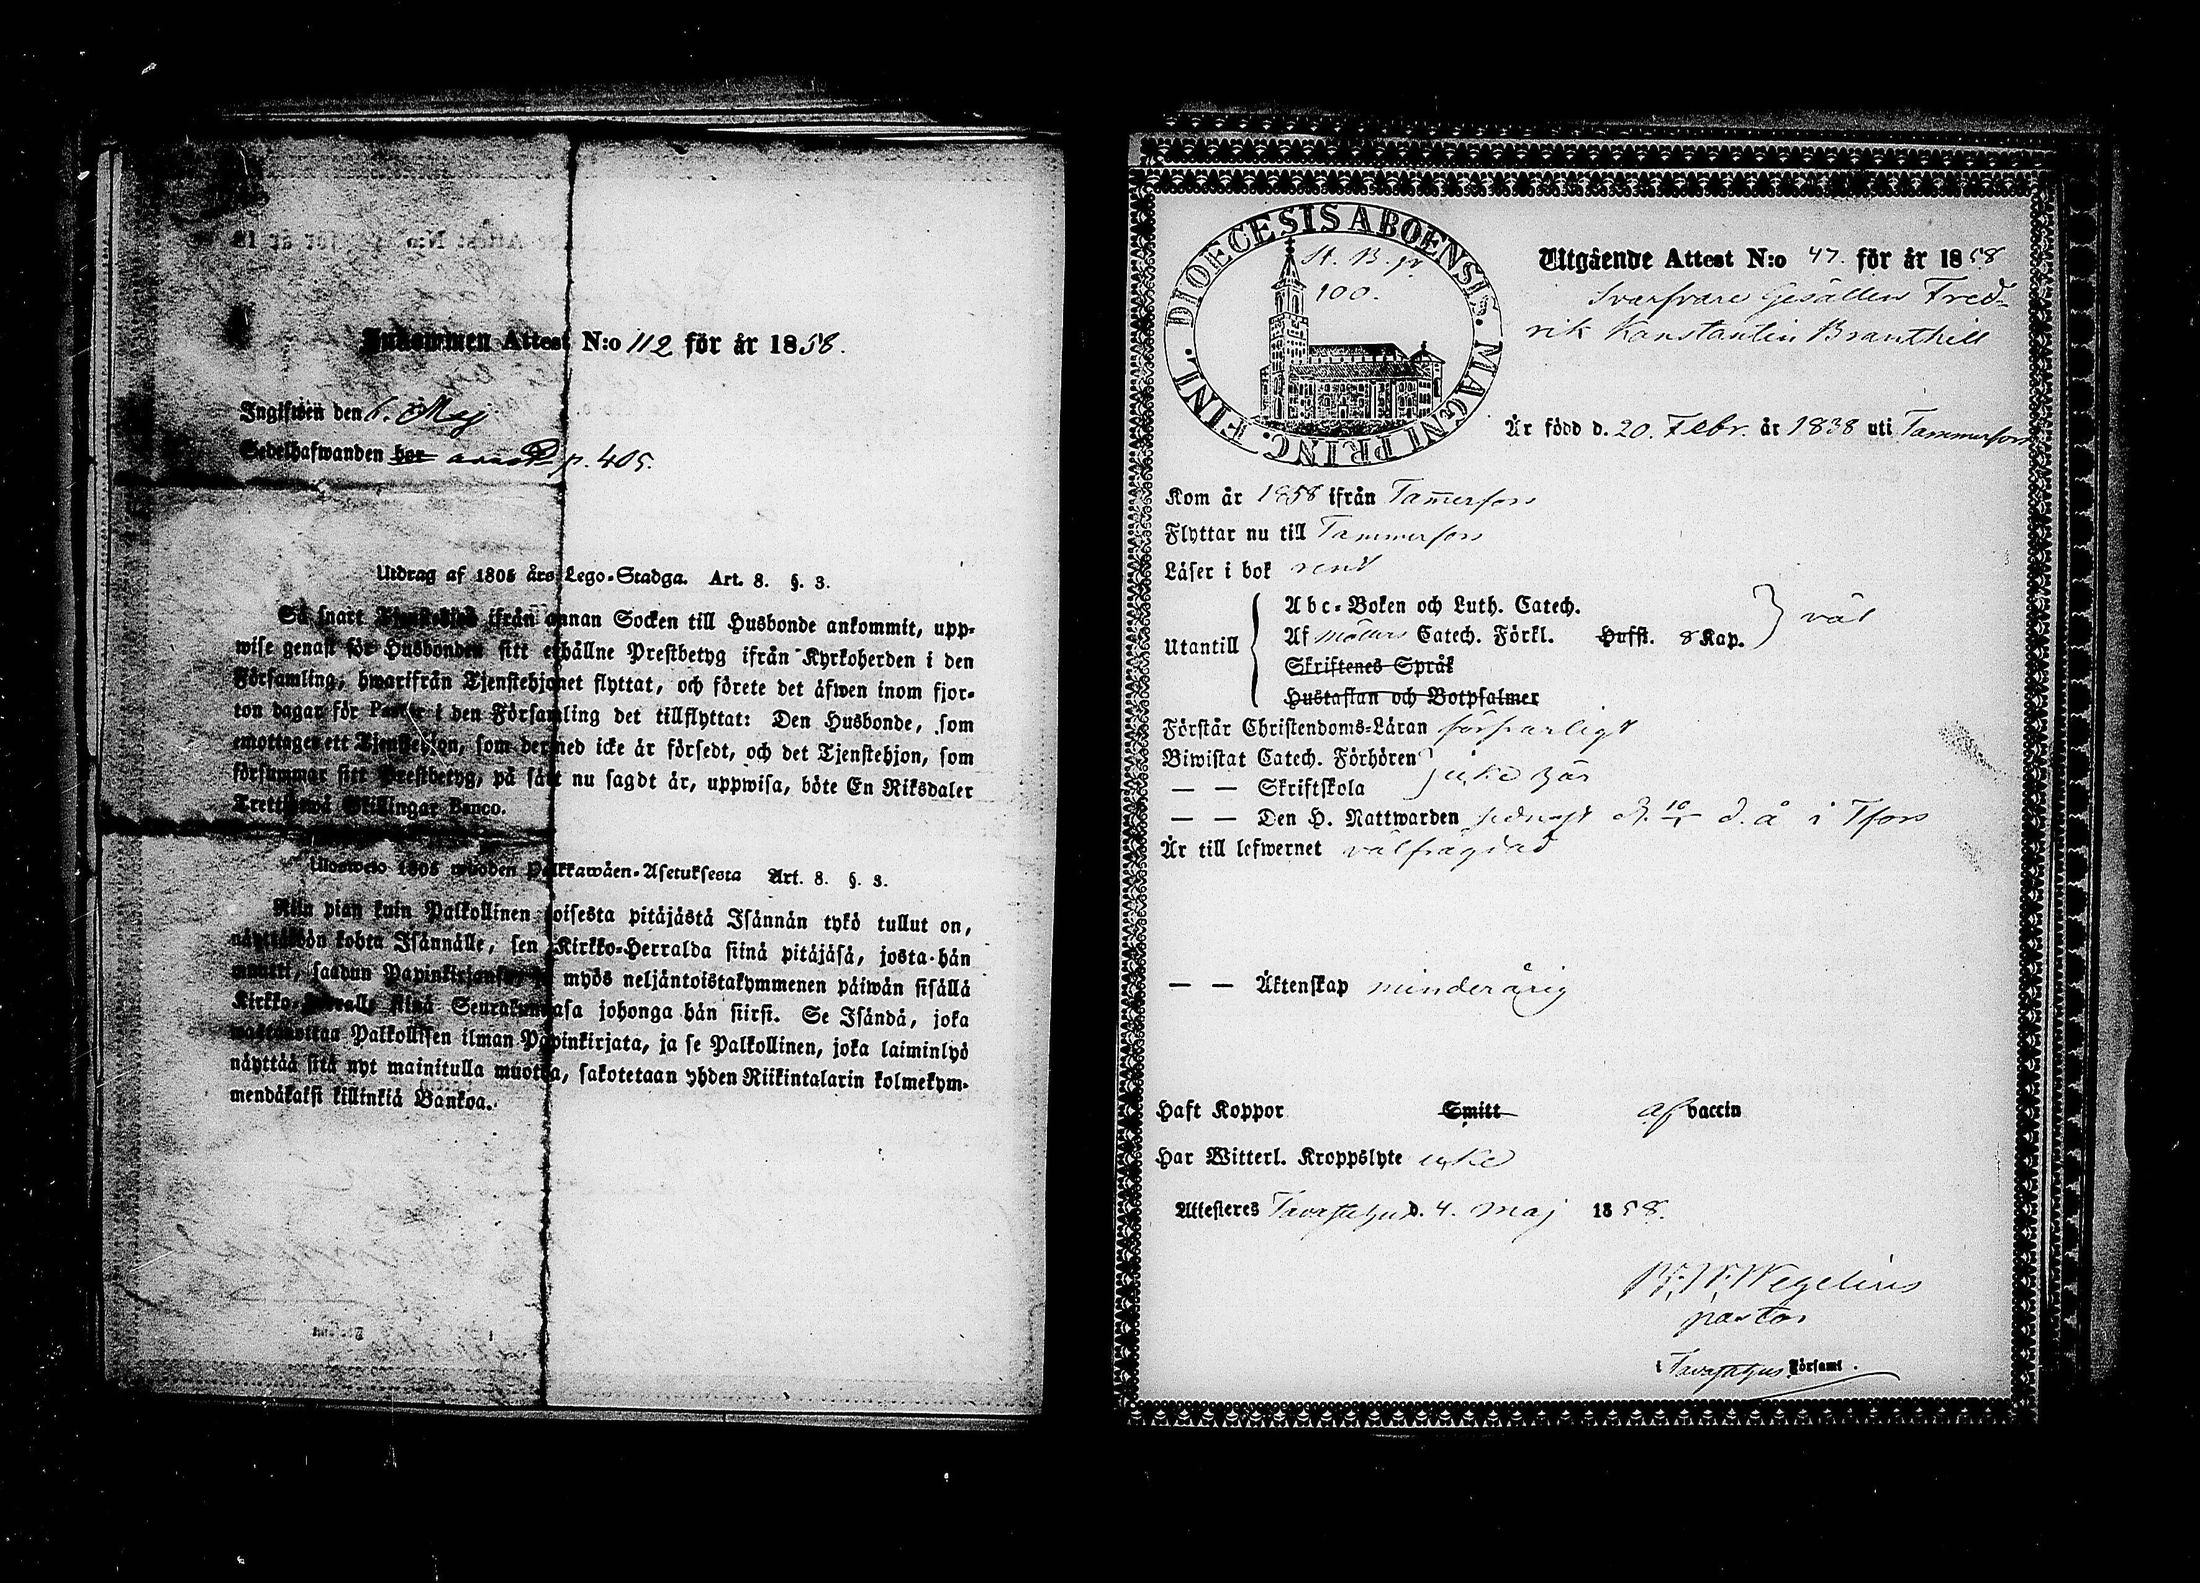 Inkommen Attest N:o 112 för år 1858.
Ingifwen den 6. Maj
Sedelhafwanden bor p. 405.
Utdrag af 1805 års Lego-Stadga. Art. 8. §. 3.
Så snart Tjenstehjon ifrån annan Socken till Husbonde ankommit, upp-
wise genast för Husbonden sitt erhållne Prestbetyg ifrån Kyrkoherden i den
Församling, hwarifrån Tjenstehjonet flyttat, och förete det äfwen inom fjor-
ton dagar för Pastor i den Församling det tillflyttat: Den Husbonde, som
emottager ett Tjenstehjon, som dermed icke är försedt, och det Tjenstehjon, som
försummar sitt Prestbetyg, på sätt nu sagdt är, uppwisa, böte En Riksdaler
Trettiotwå Skillingar Banco.
Ulosweto 1805 wuoden Palkkawäen-Asetuksesta Art. 8. §. 3.
Niin pian kuin Palkollinen toisesta pitäjästä Isännän tykö tullut on,
näyttäköön kohta Isännälle, sen Kirkko-Herralda siinä pitäjäsä, josta hän
muutti, saadun Papinkirjansa, ja myös neljäntoistakymmenen päiwän sisällä
Kirkko-Herralle siinä Seurakunnasa johonga hän siirsi. Se Isändä, joka
wastaanottaa Palkollisen ilman Papinkirjata, ja se Palkollinen, joka laiminlyö
näyttää sitä nyt mainitulla muotoa, sakotetaan yhden Riikintalarin kolmekym-
mendäkaksi killinkiä Bankoa.
DIOECESIS ABOENSIS. MAGNI PRINC. FINL.
St. B. p
100.
Utgående Attest N:o 47. för år 1858
Svarfvare Gesällen Fred-
rik Konstantin Branthill
Är född d. 20. Febr. år 1838 uti Tammerfors
Kom år 1858 ifrån Tam̄erfors
Flyttar nu till Tammerfors
Läser i bok rent
Utantill
Abc-Boken och Luth. Catech.
Af Möllers Catech. Förkl. Hufst. 8 Kap. väl
Skriftenes Språk
Hustaflan och Botpsalmer
Förstår Christendoms-Läran försvarligt
Biwistat Catech. Förhören
— — Skriftskola icke här
— — Den H. Nattwarden sednast d. å i Tfors
Är till lefwernet välfrägdad
— — Äktenskap minderårig
Haft Koppor Smitt af vaccin
Har Witterl. Kroppslyte icke
Attesteres Tavastehus d. 4. Maj 1858.
Wegelius
pastor
i Tavastehus Församl.